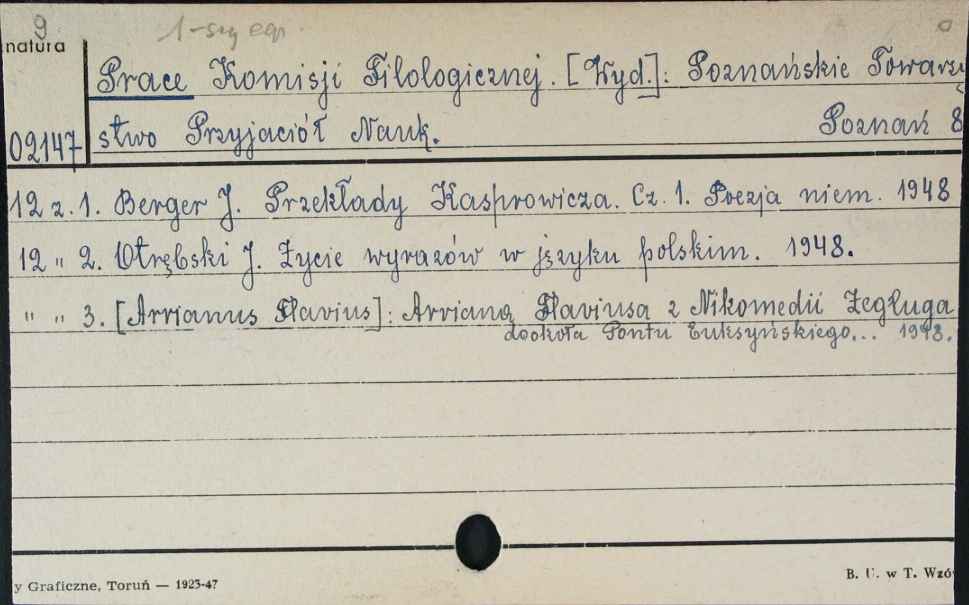 9 1-szy egz.
natura
Prace Komisji Filologicznej. [Wyd.]: Poznańskie Towarzy
02147 stwo Przyjaciół Nauk. Poznań 8
12 z. 1. Berger J. Przekłady Kasprowicza. Cz. 1. Poezja niem. 1948
12 " 2. Otrębski J. Życie wyrazów w języku polskim. 1948.
" " 3. [Arrianus Flavius]: Arriana Flaviusa z Nikomedii Żegługa
dookoła Pontu Euksyńskiego... 1948.
y Graficzne, Toruń — 1923-47
B. U. w T. Wzó